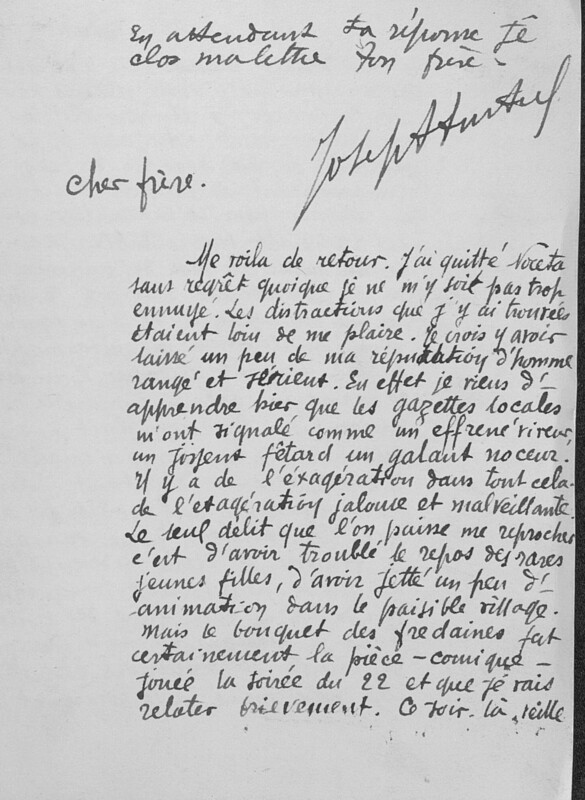 En attendant ta réponse je
clos ma lettre Ton frère -
Joseph
Cher frère.
Me voila de retour. J'ai quitté Noceta
sans regrêt quoique je ne m'y soit pas trop
ennuyé. Les distractions que j'y ai trouvées
étaient loin de me plaire. Je crois y avoir
laissé un peu de ma réputation d'homme
rangé et sérieux. En effet je viens d'-
apprendre hier que les gazettes locales
m'ont signalé comme un effrené viveur,
un joyeux fêtard un galant noceur.
Il y a de l'éxagération dans tout cela-
de l'exagération jalouse et malveillante.
Le seul délit que l'on puisse me reprocher
c'est d'avoir troublé le repos des rares
jeunes filles, d'avoir jetté un peu d'-
animation dans le paisible village.
Mais le bouquet des fredaines fut
certainement la pièce - comique -
jouée la soirée du 22 et que je vais
relater brievement. Ce soir là, veille